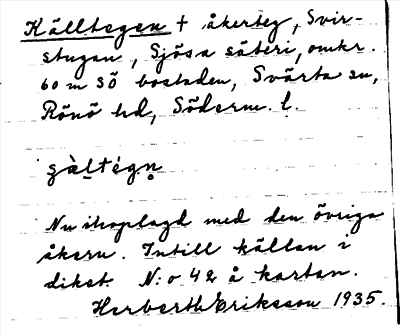 Källtegen † åkerteg, Svir-
stugan, Sjösa säteri, omkr.
60 m SÖ bostaden, Svärta sn,
Rönö hd, Söderm. l.
çàl̠tégn̥
Nu ihoplagd med den övriga
åkern. Intill källan i
diket. N:o 42 å kartan.
Herbert Eriksson 1935.